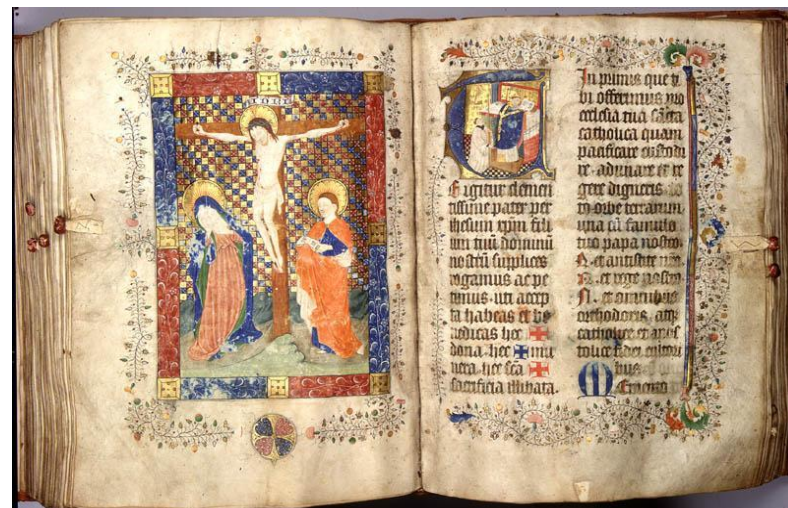 E igitur clemen
tissime pater per
ihesum xpm fili
um tuū dominū
nostrū supplices
rogamus ac pe
timus. uti accep
ta habeas et be
nedicas hec
dona. hec mu
nera. hec scā
sacrificia illibata.
In primis que t
bi offerimus pro
ecclesia tua scā
catholica quam
pacificare custodi
re. adunare et re
gere digneris to
to orbe terrarum.
una cū famulo
tuo papa nostro.
N. et antistite nro
N. et rege nostro
N. et omnibus
orthodoxis. atqȝ
catholice et apos
tolice fidei cultori
bus
M emento